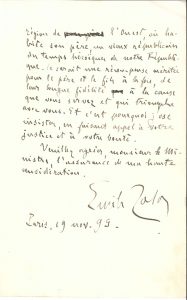 région de l'Ouest, où ha-
bite son père, un vieux républicain
du temps héroïque de notre Républi-
que. Ce serait une récompense méritée
pour le père et le fils à la fois, de
leur longue fidélité à la cause
que vous servez et qui triomphe
avec vous. Et c'est pourquoi j'ose
insister, en faisant appel à votre
justice et à votre bonté.
Veuillez agréer, monsieur le Mi-
nistre, l'assurance de ma haute
considération.
Emile Zola
Paris, 19 nov. 93.